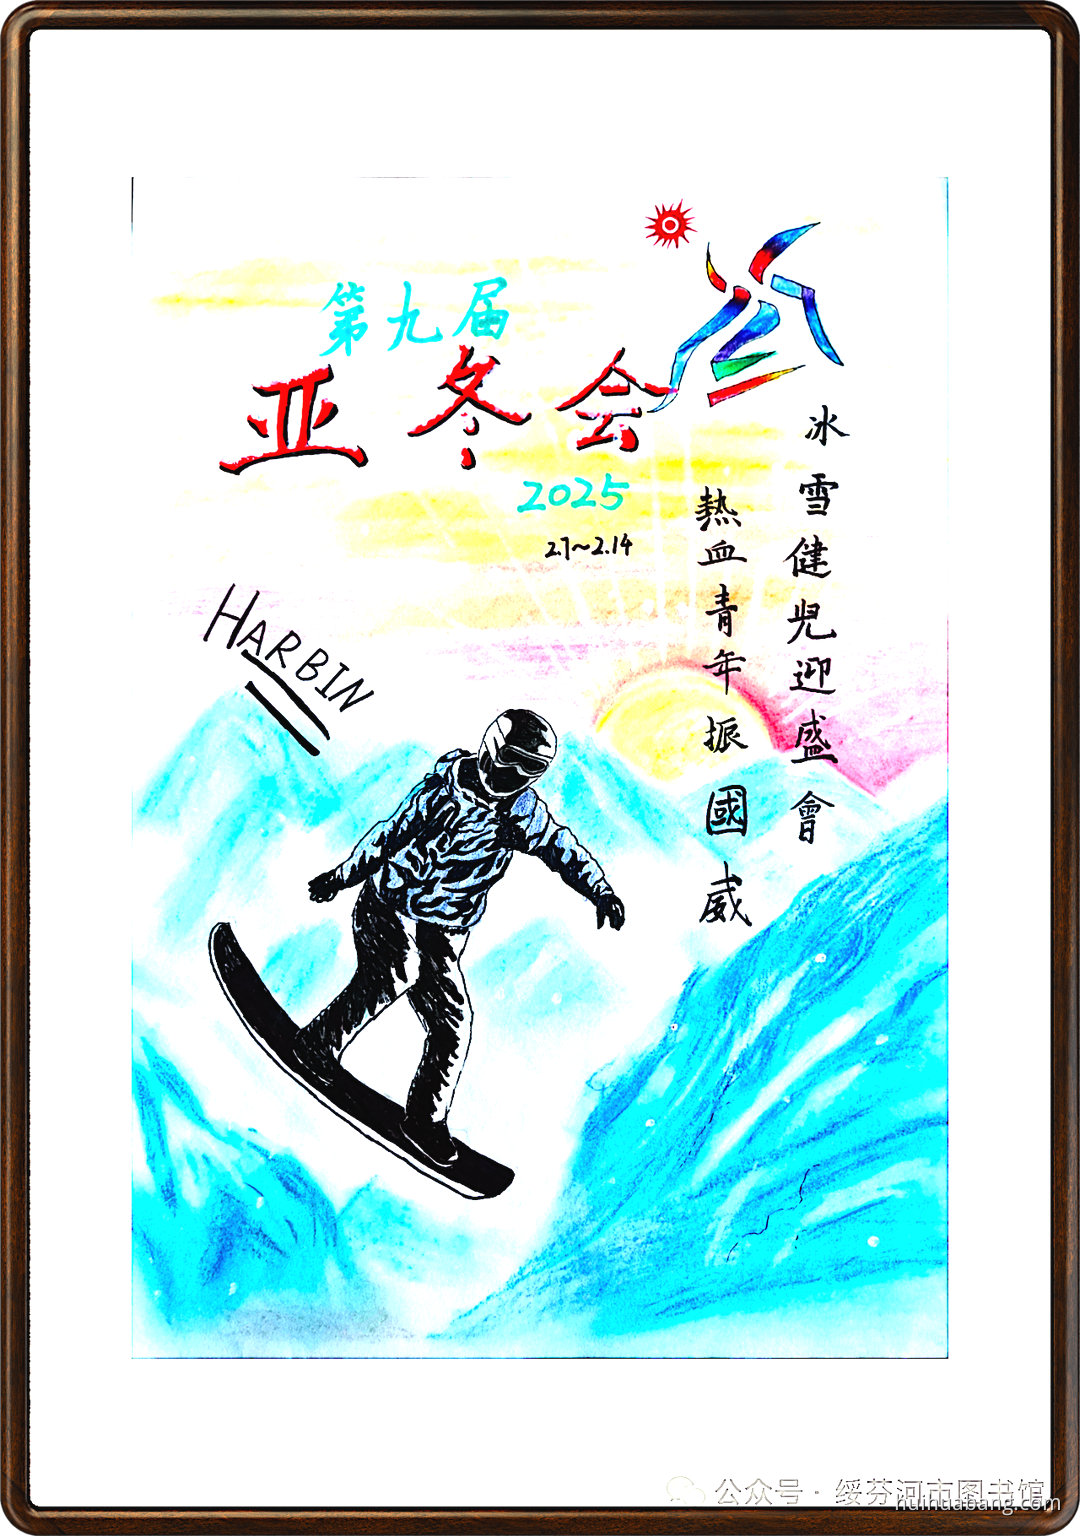 第九届
亚冬会
2025
2.7~2.14
HARBIN
冰雪健兒迎盛會
熱血青年振國威
公众号·绥芬河市图书馆
huihuabang.com